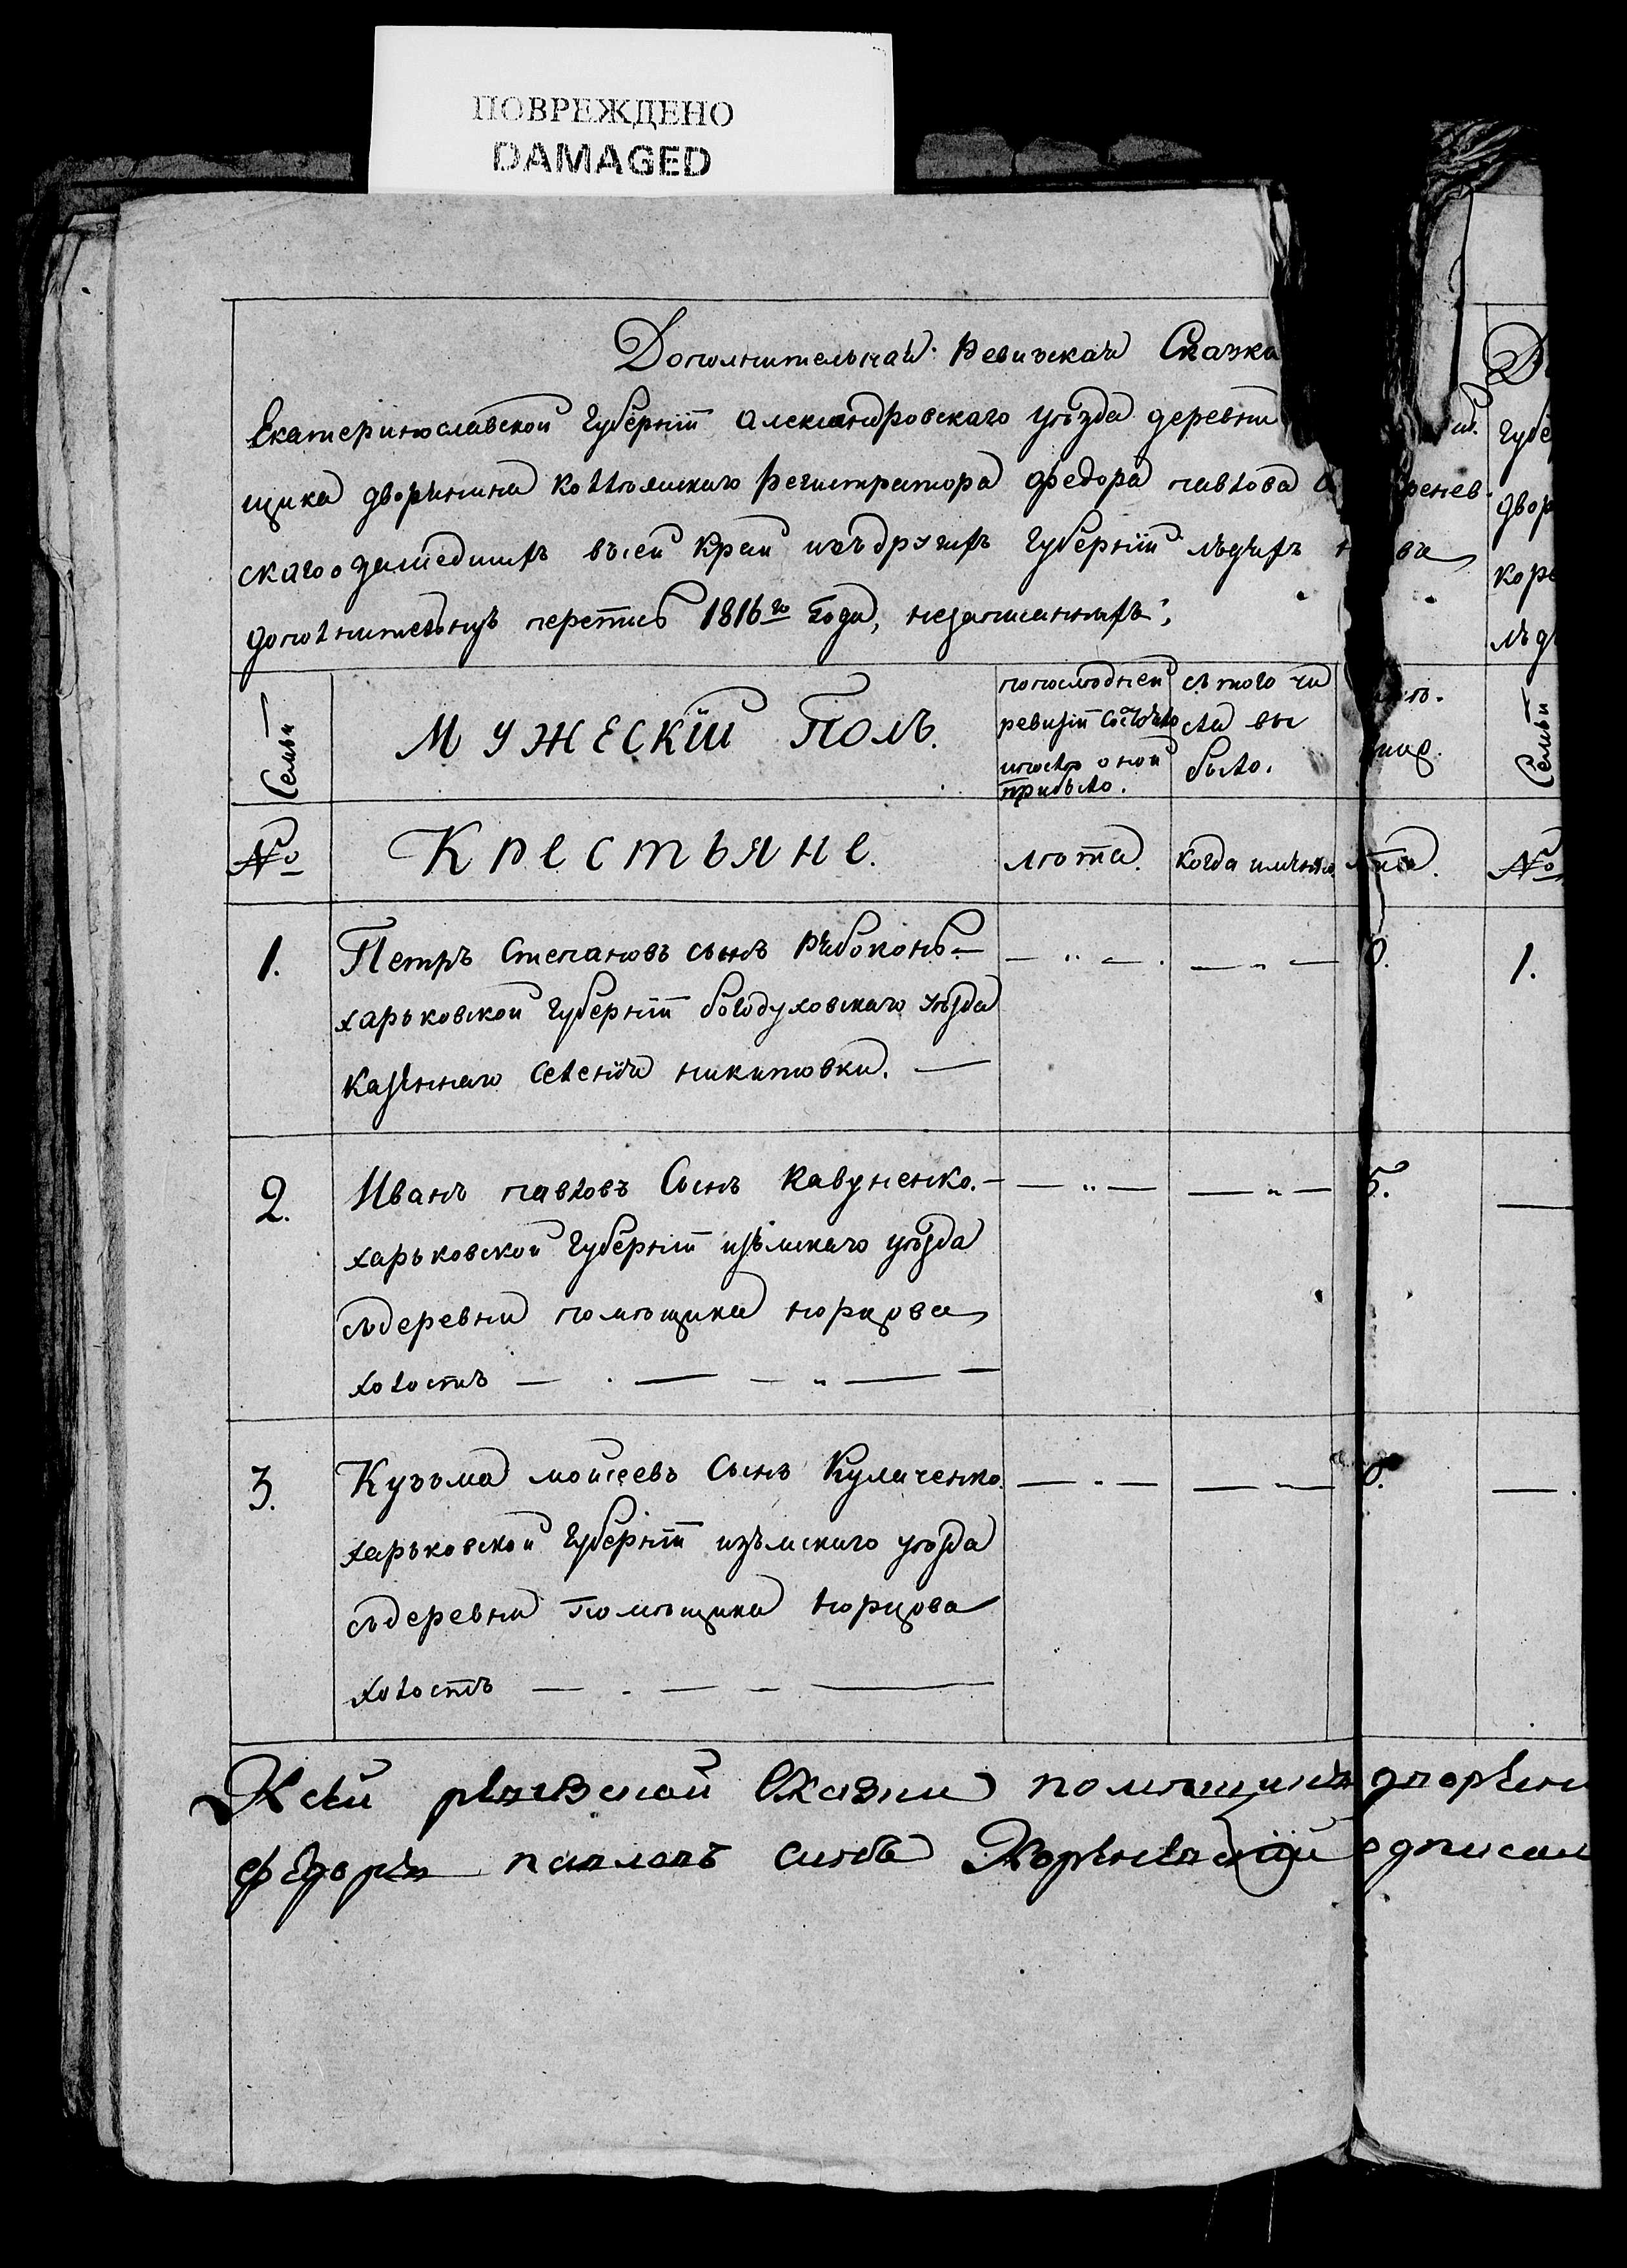 ПОВРЕЖДЕНО
DAMAGED
Дополнительная Ревизская Сказка
Екатеринославской Губернiи александровского уѣзда деревни
щика дворянина Коллѣжскаго Регистратора федора павлова
скаго зашедшихъ въсей край изъдругихъ Губернiй людяхъ
дополнительную перепись 1816го Года, незаписанныхъ;
Семьи
Мужескiй Полъ.
попослѣдней ревизiи состояло ипослѣ оной прибыло.
съ того числа выбыло.
Семьи
№
Крестьяне.
лѣта.
Когда имянно.
№
1.
Петръ Степановъ сынъ Рябоконь.
харьковской Губернiи богодуховскаго уѣзда
Казеннаго селенiя никитовки.
1.
2.
Иванъ павловъ Сынъ Кавуненко.
харьковской Губернiи изъмскаго уѣзда
съдеревни помѣщика норцова
холостъ
5.
3.
Кузъма моисеевъ Сынъ Куличенко.
харьковской Губернiи изъмскаго уѣзда
съдеревни Помѣщика норцова
холостъ
Ксей ревизской Сказки помѣщикъ дворян
федоръ павловъ сынъ Кореневскiй одписал